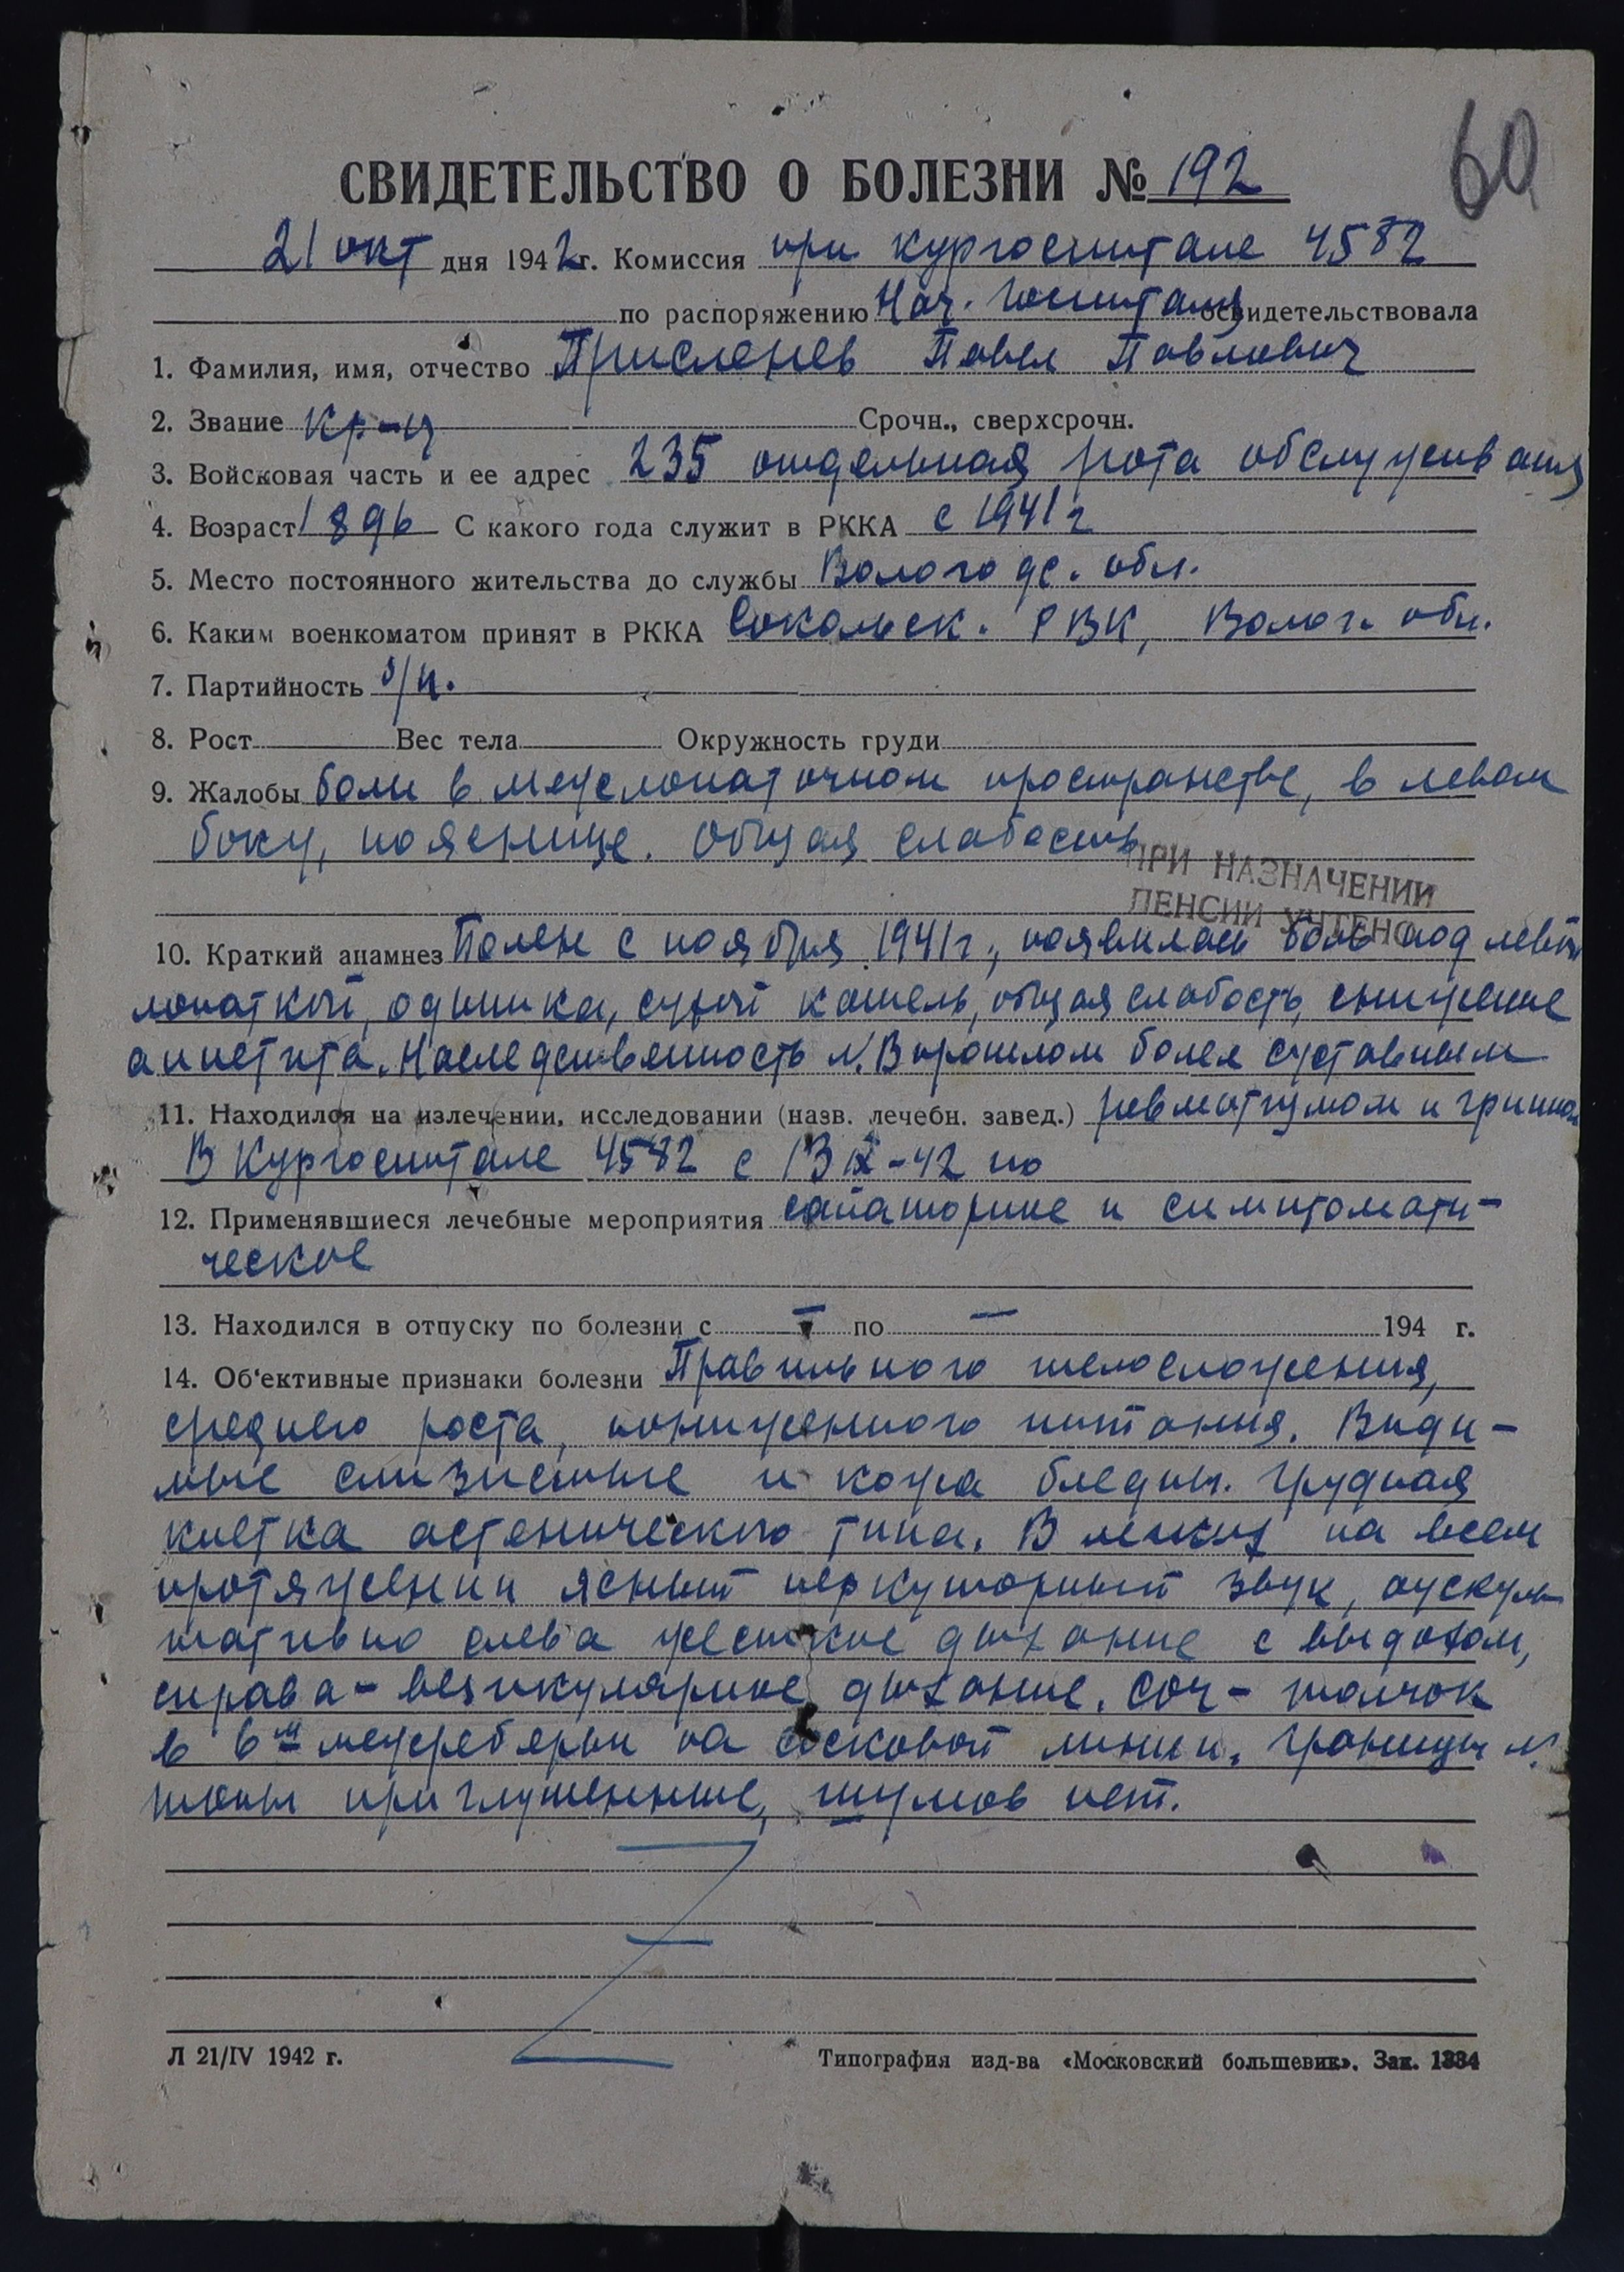 60
СВИДЕТЕЛЬСТВО О БОЛЕЗНИ № 192
21 окт дня 1942 г. Комиссия при кургоспитале 4582
по распоряжению Нач. госпиталя освидетельствовала
1. Фамилия, имя, отчество Присленев Павел Павлович
2. Звание кр-ц Срочн., сверхсрочн.
3. Войсковая часть и ее адрес 235 отдельная рота обслуживания
4. Возраст 1896 С какого года служит в РККА с 1941 г
5. Место постоянного жительства до службы Вологодс. обл.
6. Каким военкоматом принят в РККА Сокольск. РВК, Волог. обл.
7. Партийность б/п.
8. Рост Вес тела Окружность груди
9. Жалобы боли в межлопаточном пространстве, в левом
боку, пояснице. Общая слабость
ПРИ НАЗНАЧЕНИИ
ПЕНСИИ УЧТЕНО
10. Краткий анамнез Болен с ноября 1941 г., появилась боль под левой
лопаткой, одышка, сухой кашель, общая слабость, снижение
аппетита. Наследственность N. В прошлом болел суставным
11. Находился на излечении, исследовании (назв. лечебн. завед.) ревматизмом и гриппом
В Кургоспитале 4582 с 13 IX-42 по
12. Применявшиеся лечебные мероприятия санаторное и симптомати-
ческое
13. Находился в отпуску по болезни с — по — 194 г.
14. Об‘ективные признаки болезни Правильного телосложения,
среднего роста, пониженного питания. Види-
мые слизистые и кожа бледны. Грудная
клетка астенического типа. В легких на всем
протяжении ясный перкуторный звук, аускуль
тативно слева жесткое дыхание с выдохом,
справа - везикулярное дыхание. Соч- толчок
в 6м межреберьи на сосковой линии. Границы N.
тоны приглушенные, шумов нет.
Л 21/IV 1942 г. Типография изд-ва «Московский большевик». Зак. 1334